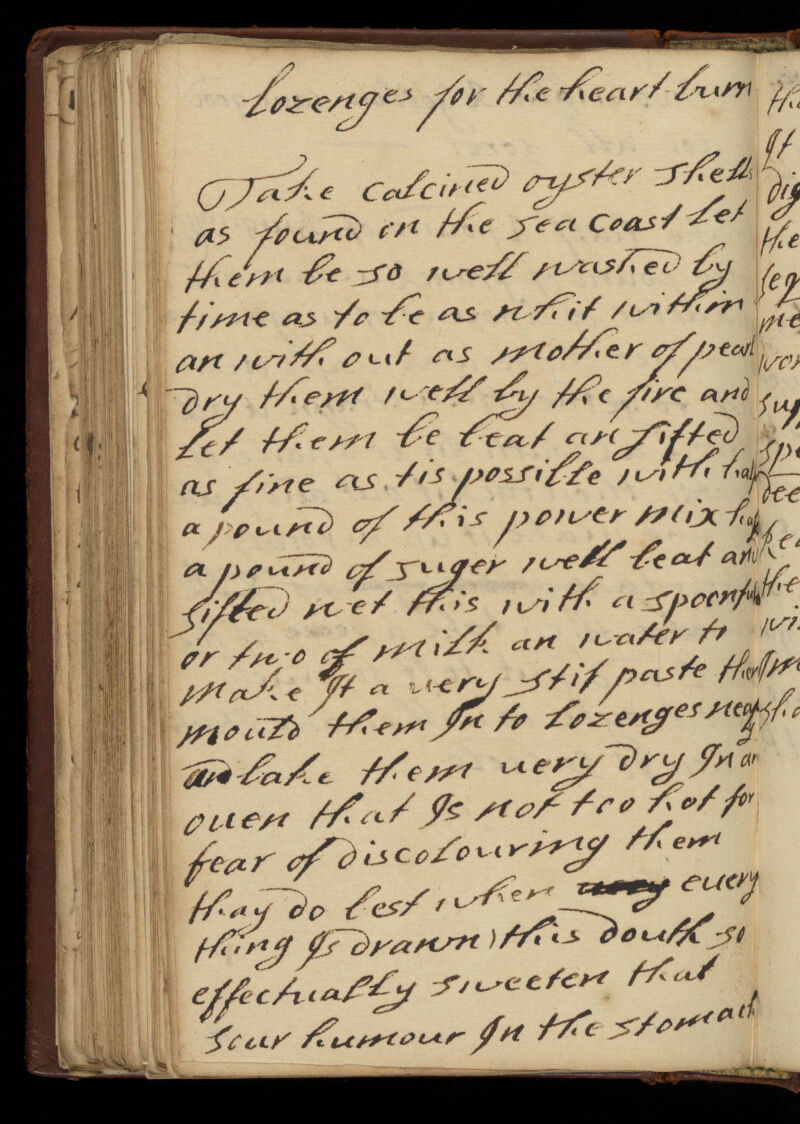 Lozenges for the heart burn
Take calcined oyster shells
as found on the sea coast Let
them be so well washed by
time as to be as whit within
an with out as mother of pearl
dry them well by the fire and
Let them be beat an sifted
as fine as tis possible with half
a pound of this power mix half
a pound of suger well beat and
sifted wet this with a spoonfull
or two of milk an water to
make It a very stif paste then
mould them In to Lozenges neatly
and bake them uery dry In an
ouen that Is not too hot for
fear of discolouring them
thay do best when euery
thing Is drawn this douth so
effectually sweeten that
sour humour In the stomach